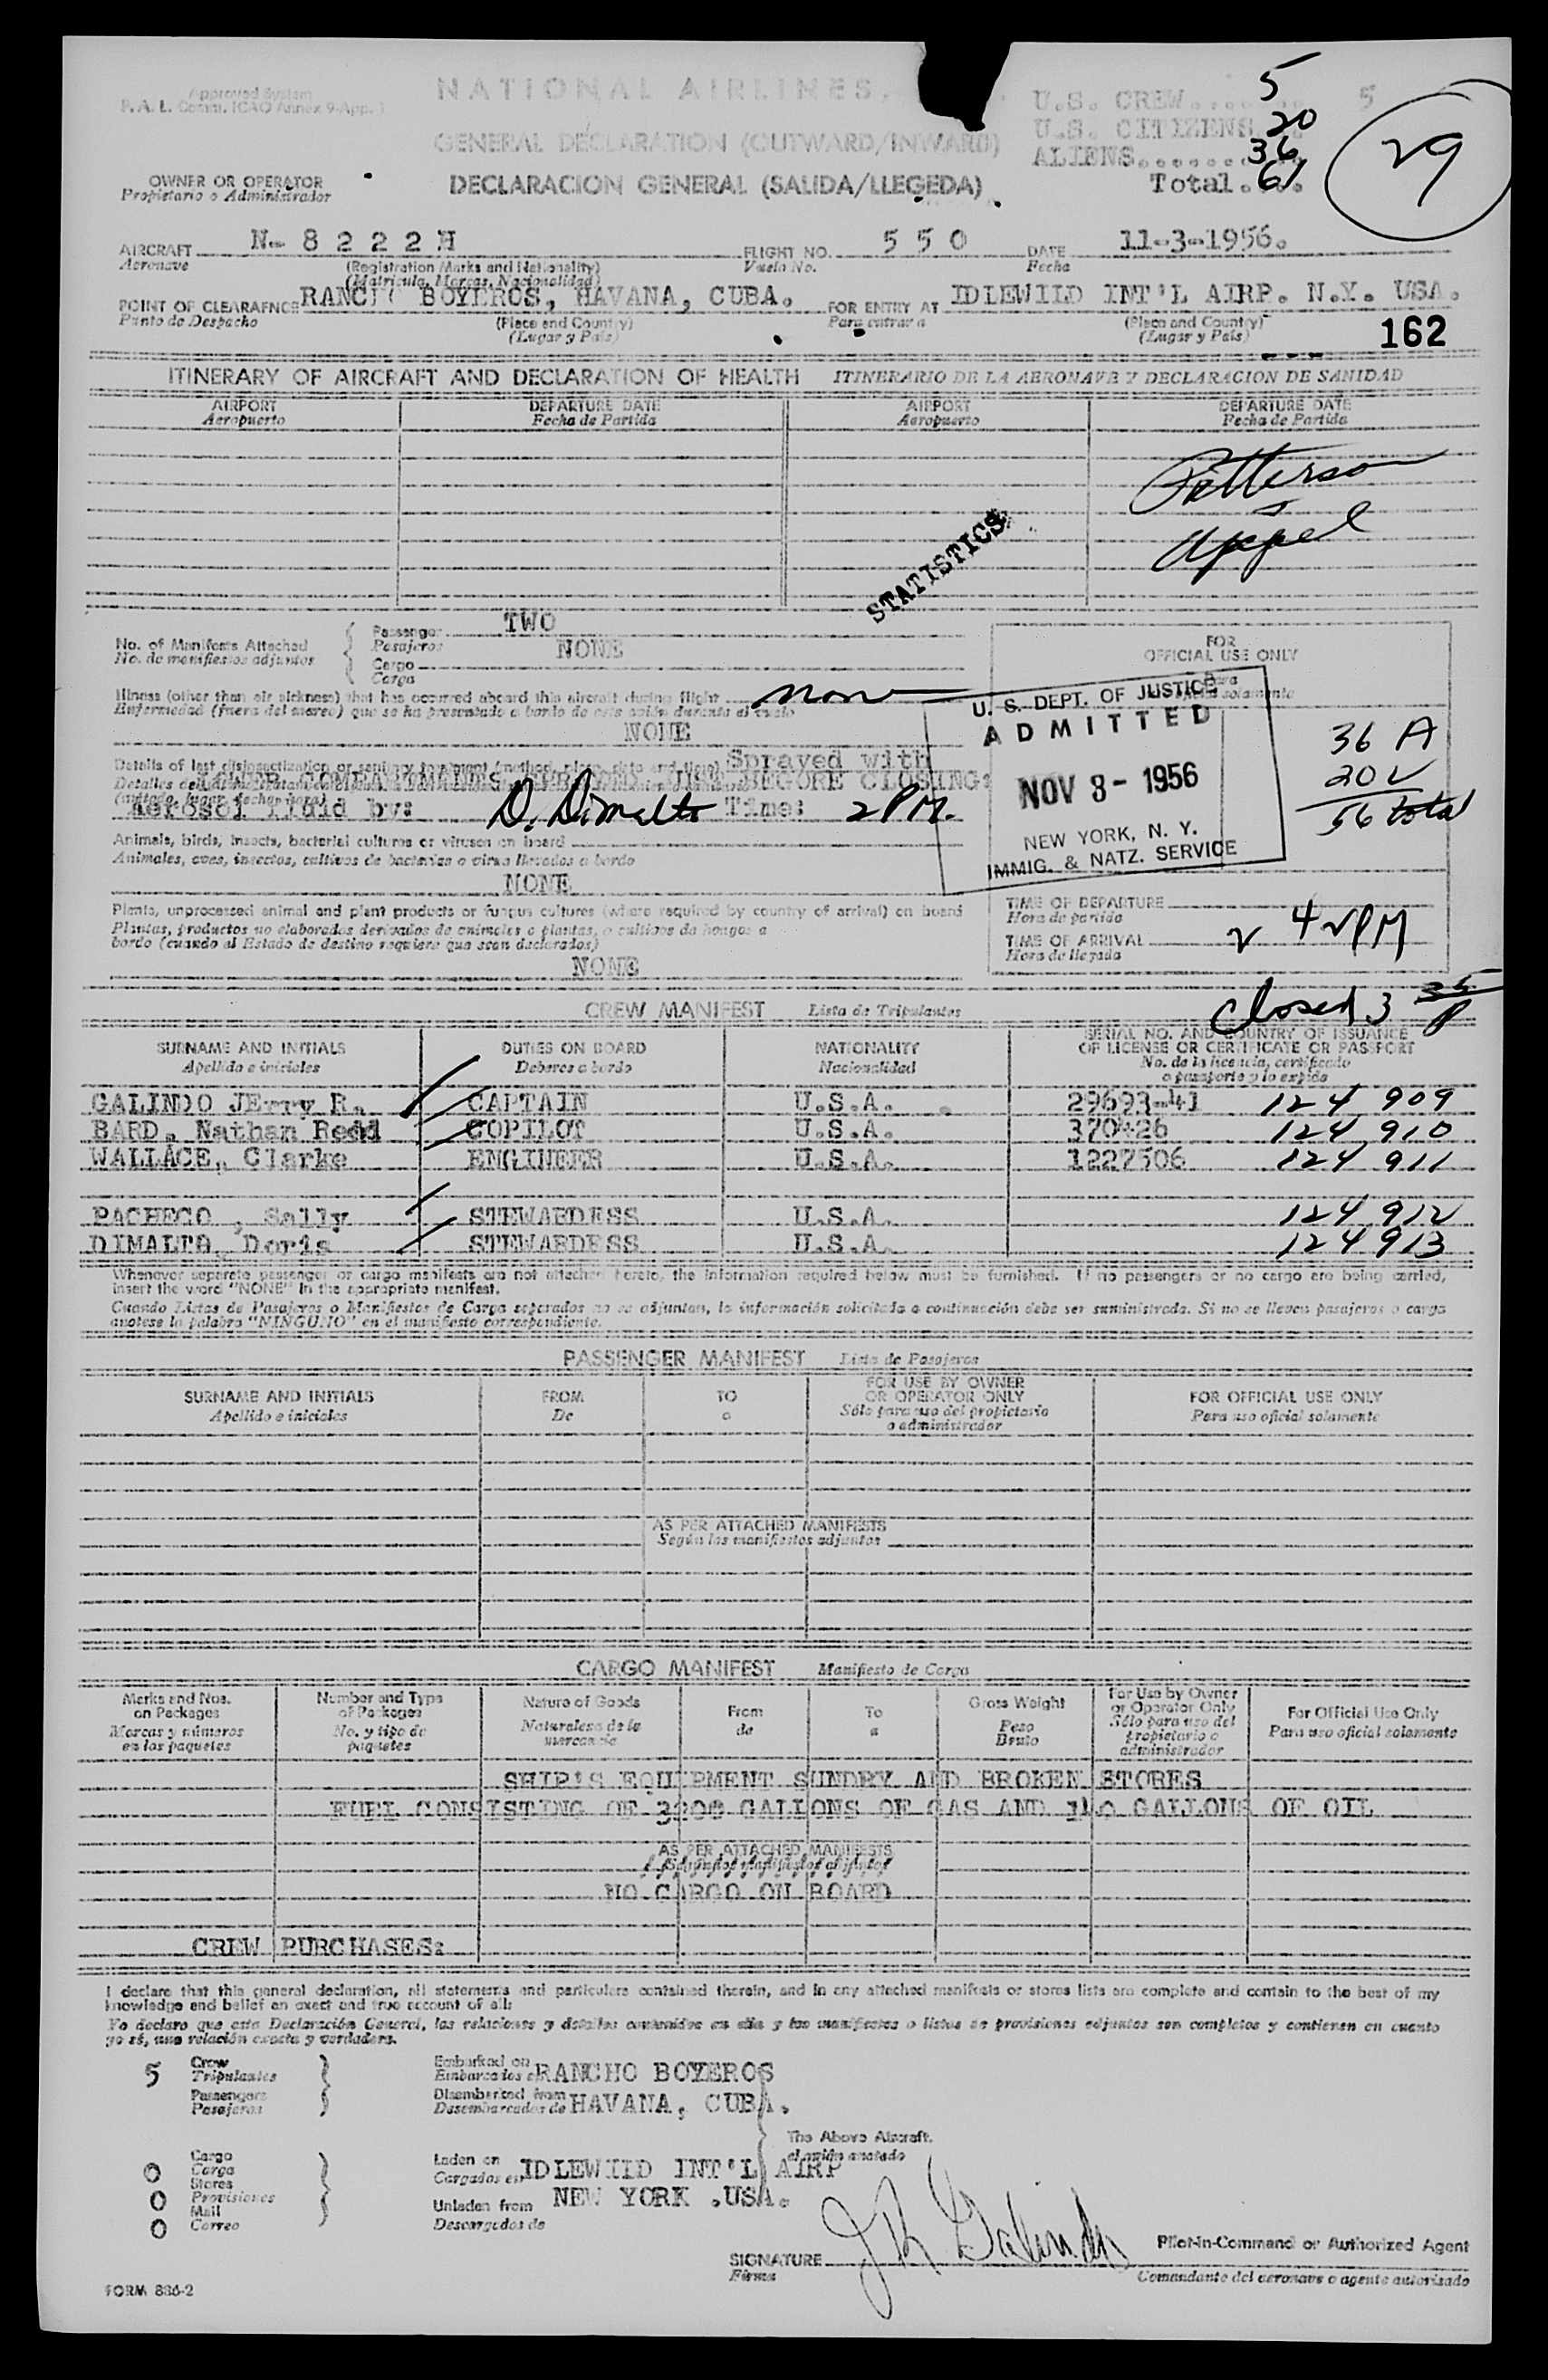 Approved System
P. A. L. Comm. ICAO Annex 9-App. 1
NATIONAL AIRLINES,
GENERAL DECLARATION (OUTWARD/INWARD)
DECLARACION GENERAL (SALIDA/LLEGEDA)
U.S. CREW....... 5 5
U.S. CITIZENS 20
ALIENS......... 36
Total.... 61
29
OWNER OR OPERATOR
Propietario o Administrador
AIRCRAFT N- 8 2 2 2 H FLIGHT NO. 5 5 0 DATE 11-3-1956.
Aeronave (Registration Marks and Nationality) Vuelo No. Fecha
(Matricula, Marcas, Nacionalidad)
POINT OF CLEARAFNCE RANCHO BOYEROS, HAVANA, CUBA. FOR ENTRY AT IDLEWIID INT'L AIRP. N.Y. USA.
Punto de Despacho (Place and Country) Para entrar a (Place and Country)
(Lugar y País) (Lugar y País)
162
ITINERARY OF AIRCRAFT AND DECLARATION OF HEALTH ITINERARIO DE LA AERONAVE Y DECLARACION DE SANIDAD
AIRPORT DEPARTURE DATE AIRPORT DEPARTURE DATE
Aeropuerto Fecha de Partida Aeropuerto Fecha de Partida
Patterson
Appel
STATISTICS
No. of Manifests Attached Passenger TWO
No. de manifiestos adjuntos Pasajeros NONE
Cargo
Carga
FOR
OFFICIAL USE ONLY
Para
solamente
Illness (other than air sickness) that has occurred aboard this aircraft during flight none
Enfermedad (fuera del mareo) que se ha presentado a bordo de este avión durante el vuelo
NONE
U. S. DEPT. OF JUSTICE
ADMITTED
NOV 3 - 1956
NEW YORK, N. Y.
IMMIG. & NATZ. SERVICE
36 A
20 V
56 total
Details of last disinsectization or sanitary treatment (method, place, date and time) Sprayed with
LOWER COMPARTMENTS SPRAYED JUST BEGORE CLOSING:
Aerosol fluid by: D. Dimalta Time: 2 PM.
Animals, birds, insects, bacterial cultures or viruses on board
Animales, aves, insectos, cultivos de bacterias o virus llevados a bordo
NONE
Plants, unprocessed animal and plant products or fungus cultures (where required by country of arrival) on board
Plantas, productos no elaborados derivados de animales o plantas, o cultivos de hongos a
bordo (cuando el Estado de destino requiere que sean declarados)
NONE
TIME OF DEPARTURE
Hora de partida
TIME OF ARRIVAL 2 42 PM
Hora de llegada
closed 3 35 P
CREW MANIFEST Lista de Tripulantes
SURNAME AND INITIALS DUTIES ON BOARD NATIONALITY SERIAL NO. AND COUNTRY OF ISSUANCE
OF LICENSE OR CERTIFICATE OR PASSPORT
Apellido e iniciales Deberes a bordo Nacionalidad No. de la licencia, certificado
o pasaporte y lo expide
GALINDO JErry R. CAPTAIN U.S.A. 29693-41 124 909
BARD, Nathan Redd COPILOT U.S.A. 370426 124 910
WALLACE, Clarke ENGINEER U.S.A. 1227506 124 911
PACHECO , Sally STEWARDESS U.S.A. 124 912
DIMALTA, Doris STEWARDESS U.S.A. 124 913
Whenever separate passenger or cargo manifests are not attached hereto, the information required below must be furnished. If no passengers or no cargo are being carried,
insert the word "NONE" in the appropriate manifest.
Cuando Listas de Pasajeros o Manifiestos de Carga separados no se adjuntan, la información solicitada a continuación debe ser suministrada. Si no se lleven pasajeros o carga
anotese la palabra "NINGUNO" en el manifiesto correspondiente.
PASSENGER MANIFEST Lista de Pasajeros
SURNAME AND INITIALS FROM TO FOR USE BY OWNER
OR OPERATOR ONLY FOR OFFICIAL USE ONLY
Apellido e iniciales De a Sólo para uso del propietario
o administrador Para uso oficial solamente
AS PER ATTACHED MANIFESTS
Según los manifiestos adjuntos
CARGO MANIFEST Manifiesto de Carga
Marks and Nos.
on Packages
Marcas y números
en los paquetes
Number and Type
of Packages
No. y tipo de
paquetes
Nature of Goods
Naturaleza de la
mercancia
From
de
To
a
Gross Weight
Peso
Bruto
For Use by Owner
or Operator Only
Sólo para uso del
propietario o
administrador
For Official Use Only
Para uso oficial solamente
SHIP'S EQUIPMENT SUNDRY AND BROKEN STORES
FUEL CONSISTING OF 3200 GALLONS OF GAS AND 140 GALLONS OF OIL
AS PER ATTACHED MANIFESTS
NO CARGO ON BOARD
CREW PURCHASES:
I declare that this general declaration, all statements and particulars contained therein, and in any attached manifests or stores lists are complete and contain to the best of my
knowledge and belief an exact and true account of all:
Yo declaro que esta Declaración General, las relaciones y detalles contenidos en ella y los manifiestos o listas de provisiones adjuntos son completos y contienen en cuanto
yo sé, una relación exacta y verdadera.
5 Crew
Tripulantes
Passengers
Pasajeros
Embarked on
Embarcados en RANCHO BOYEROS
Disembarked from
Desembarcados de HAVANA, CUBA.
The Above Aircraft.
el avión anotado
0 Cargo
Carga
0 Stores
Provisiones
0 Mail
Correo
Laden on
Cargados en IDLEWIID INT'L AIRP
Unladen from NEW YORK .USA.
Descargados de
SIGNATURE J R Galindo Pilot-in-Command or Authorized Agent
Firma Comandante del aeronave o agente autorizado
FORM 836-2